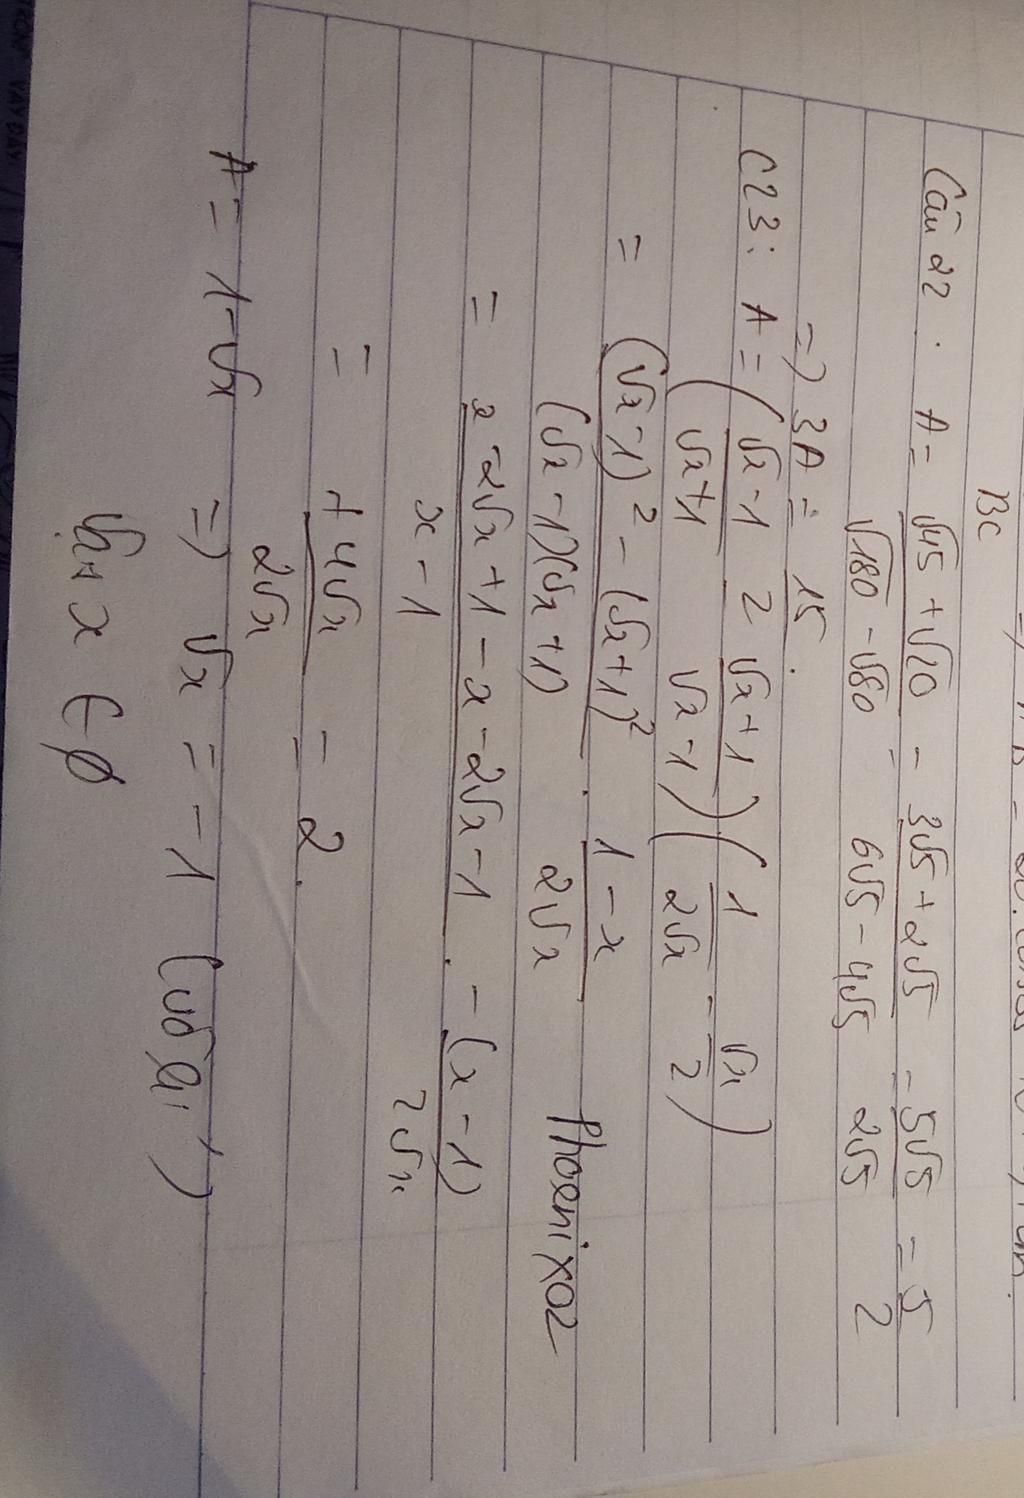 BC
Câu 22 . A = √45 + √20 / √180 - √80 = 3√5 + 2√5 / 6√5 - 4√5 = 5√5 / 2√5 = 5 / 2
=) 3A = 15 / 2
C23: A = ( √x - 1 / √x + 1 - √x + 1 / √x - 1 ) ( 1 / 2√x - √x / 2 )
= (√x - 1)² - (√x + 1)² / (√x - 1)(√x + 1) . 1 - x / 2√x
Phoenix02
= x - 2√x + 1 - x - 2√x - 1 / x - 1 . -(x - 1) / 2√x
= + 4√x / 2√x = 2.
A = 1 - √x =) √x = -1 (vô lí)
Vậy x ∈ ∅